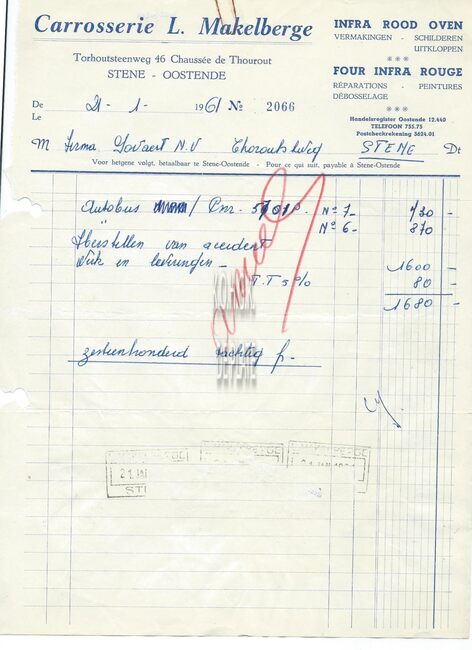 Carrosserie L. Makelberge
Torhoutsteenweg 46 Chaussée de Thourout
STENE - OOSTENDE
INFRA ROOD OVEN
VERMAKINGEN - SCHILDEREN
UITKLOPPEN
***
FOUR INFRA ROUGE
RÉPARATIONS - PEINTURES
DÉBOSSELAGE
***
Handelsregister Oostende 12.440
TELEFOON 755.75
Postcheckrekening 3624.01
De 21-1- 1961 No 2066
Le
M Firma Govaert N.V Thoroutschweg STENE Dt
Voor hetgene volgt, betaalbaar te Stene-Oostende - Pour ce qui suit, payable à Stene-Ostende
Autobus / No 7- 730 -
" No 6- 870
Herstellen van accident
Werk en leveringen - 1600 -
T.T 5% 80 -
1680 -
zestienhonderd tachtig fr-
21 JAN
STE